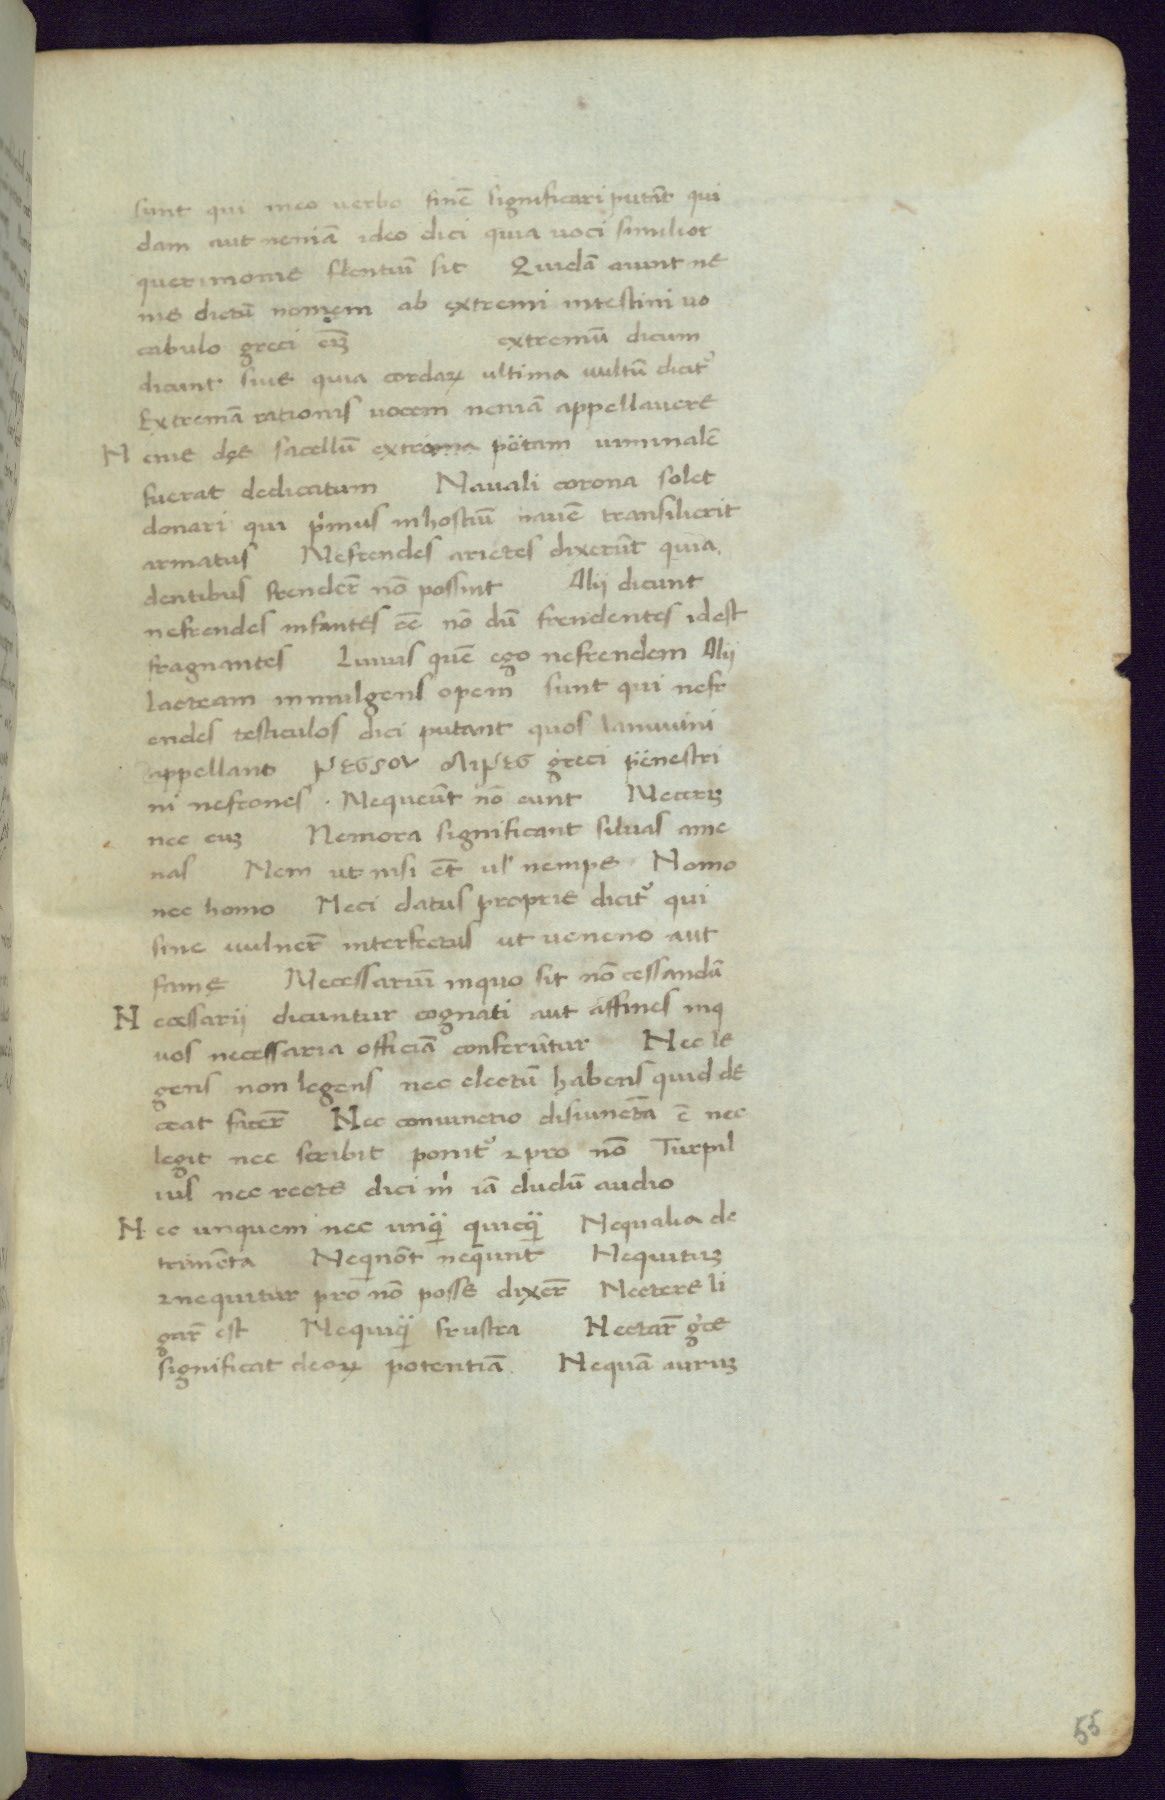 sunt qui ineo verbo finē significari putāt qui
dam aut neniā ideo dici quia uoci similior
querimonie flentiū sit Quidā aiunt ne
nie dictū nomem ab extremi intestini uo
cabulo greci extremū dicum
dicunt siue quia cordaꝝ ultima uultū dicit᷑
Extremā rationis uocem neniā appellauere
N enie dęe sacellū extrema portam uiminalē
fuerat dedicatum Nauali corona solet
donari qui pͥmus inhostiū nauē transilierit
armatus Nefrendes arietes dixerūt quia
dentibus frender̄ nō possint Alij dicunt
nefrendes infantes eē nō dū frendentes idest
fragnantes Liuius quē ego nefrendem Alij
lacteam inmulgens opem sunt qui nefr
endes testiculos dici putant quos lanuuini
appellant greci p̈enestri
ni nefrones · Nequeūt nō eunt Necerꝫ
nec euꝫ Nemora significant siluas ame
nas Nem ut nisi et̄ ul᷑ nempe Nomo
nec homo Neci datus proprie dicit᷑ qui
sine uulner̄ interfectus ut ueneno aut
famę Necessariū inquo sit nō cessandū
N ecessarij dicuntur cognati aut affines inq
uos necessaria officiā conferūtur Nec le
gens non legens nec electū habens quid de
ceat facer̄ Nec coniunctio disiuncta ē nec
legit nec scribit ponit᷑ ⁊ pro nō Turpil
ius nec recte dici mͥ iā dudū audio
N ec unquem nec unq̈ quicq̈ Nequalia de
trimēta Neqnōt nequnt Nequituꝫ
⁊ nequitur pro nō posse dixer̄ Nectere li
gar̄ est Nequiq̈ frustra Nectar̄ gͬce
significat deoꝝ potentiā. Nequā auruꝫ
55